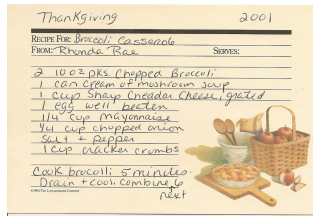 Thankgiving 2001
RECIPE FOR: Broccoli Casserole
FROM: Rhonda Rae SERVES:
2 10 oz pks. Chopped Broccoli
1 can cream of mushroom soup
1 cup Sharp Cheddar Cheese, grated
1 egg well beaten
1/4 cup mayonnaise
1/4 cup chopped onion
Salt + pepper
1 cup cracker crumbs
Cook brocolli 5 minutes.
Drain + cool combine 6
next